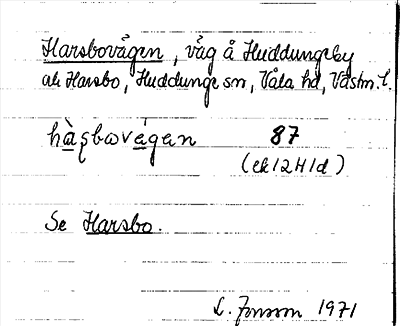 Harsbovägen, väg å Huddungeby
ak Harsbo, Huddunge sn, Våla hd, Västm. l.
hàʂbovä́gen 87
(ek 12H1d)
Se Harsbo.
L. Jonsson 1971